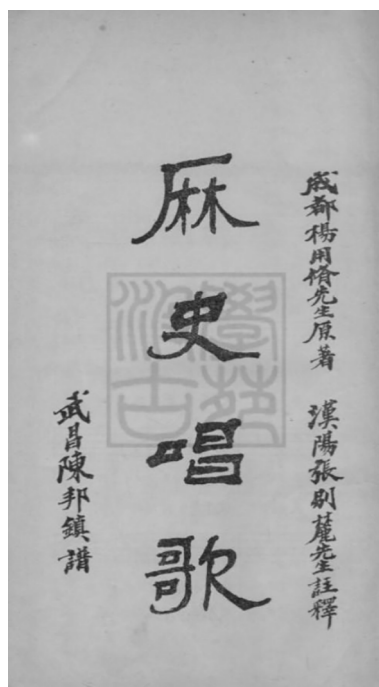 成都楊用脩先生原著 漢陽張別麓先生註釋
厤史唱歌
武昌陳邦鎮譜
學苑
汲古